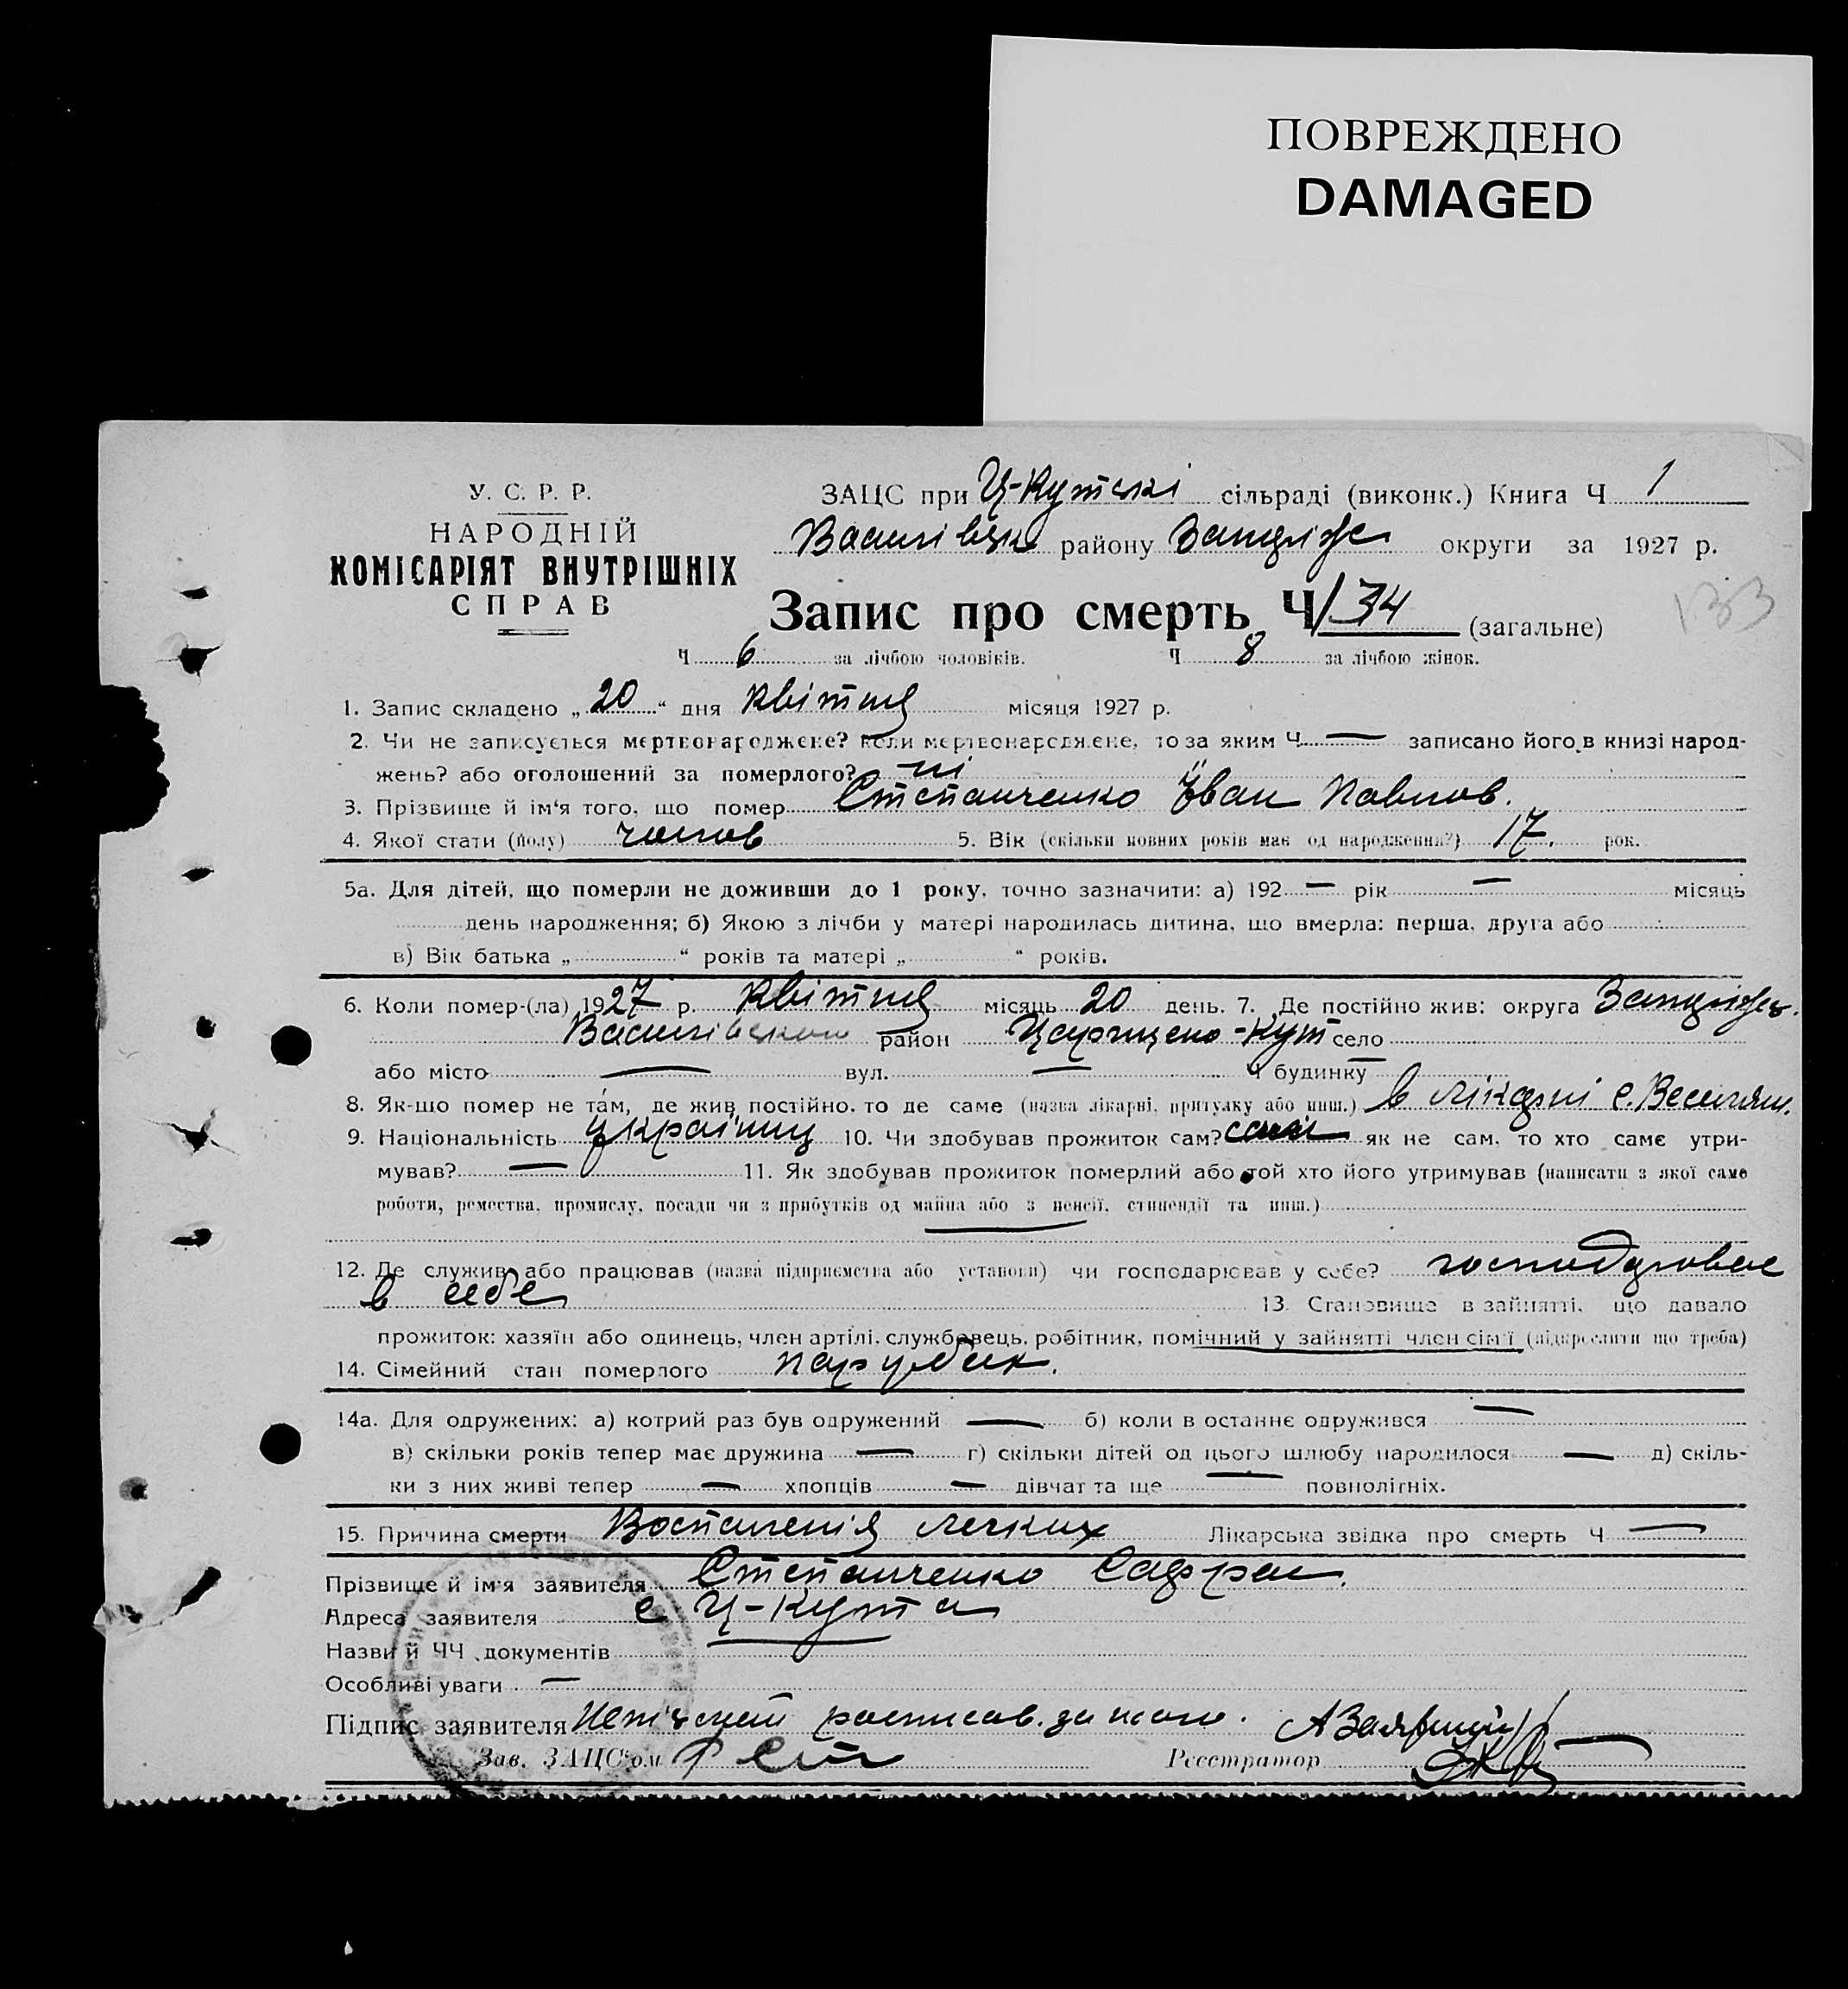 ПОВРЕЖДЕНО
DAMAGED
У. С. Р. Р.
НАРОДНІЙ
КОМІСАРІЯТ ВНУТРІШНІХ
СПРАВ
ЗАЦС при Ц-Кутські сільраді (виконк.) Книга Ч 1
Василівськ району Запоріж округи за 1927 р.
Запис про смерть Ч 134 (загальне)
133
Ч 6 за лічбою чоловіків. Ч 8 за лічбою жінок.
1. Запис складено „20“ дня Квітня місяця 1927 р.
2. Чи не записується мертвонароджене? коли мертвонароджене, то за яким Ч. — записано його в книзі народ-
жень? або оголошений за померлого? ні
3. Прізвище й ім‘я того, що помер Степанченко Іван Павлов.
4. Якої стати (полу) чолов 5. Вік (скільки повних років має од народження?) 17. рок.
5а. Для дітей, що померли не доживши до 1 року, точно зазначити: а) 192 — рік — місяць
день народження; б) Якою з лічби у матері народилась дитина, що вмерла: перша, друга або
в) Вік батька „ “ років та матері „ “ років.
6. Коли помер-(ла) 1927 р. Квітня місяць 20 день. 7. Де постійно жив: округа Запоріжс.
Василівського район Царицено-Кут село
або місто — вул. — Ч будинку —
8. Як-що помер не там, де жив постійно, то де саме (назва лікарні, притулку або инш.) в лікарні с.
9. Національність Українец 10. Чи здобував прожиток сам? сам як не сам, то хто саме утри-
мував? — 11. Як здобував прожиток померлий або той хто його утримував (написати з якої саме
роботи, ремества, промислу, посади чи з прибутків од майна або з пенсії, стипендії та инш.) —
12. Де служив або працював (назва підприємства або установи) чи господарював у себе? господаровав
в себе 13. Становище в зайнятті, що давало
прожиток: хазяїн або одинець, член артілі, службовець, робітник, помічний у зайнятті член сім‘ї (підкреслити що треба)
14. Сімейний стан померлого парубак.
14а. Для одружених: а) котрий раз був одружений — б) коли в останнє одружився —
в) скільки років тепер має дружина — г) скільки дітей од цього шлюбу народилося — д) скіль-
ки з них живі тепер — хлопців — дівчат та ще — повнолітніх.
15. Причина смерти Воспаленія легких Лікарська звідка про смерть Ч —
Прізвище й ім‘я заявителя Степанченко
Адреса заявителя с Ц-Кута
Назви й ЧЧ документів —
Особливі уваги —
Підпис заявителя росписав. за него.
Зав. ЗАЦС‘ом Реєстратор